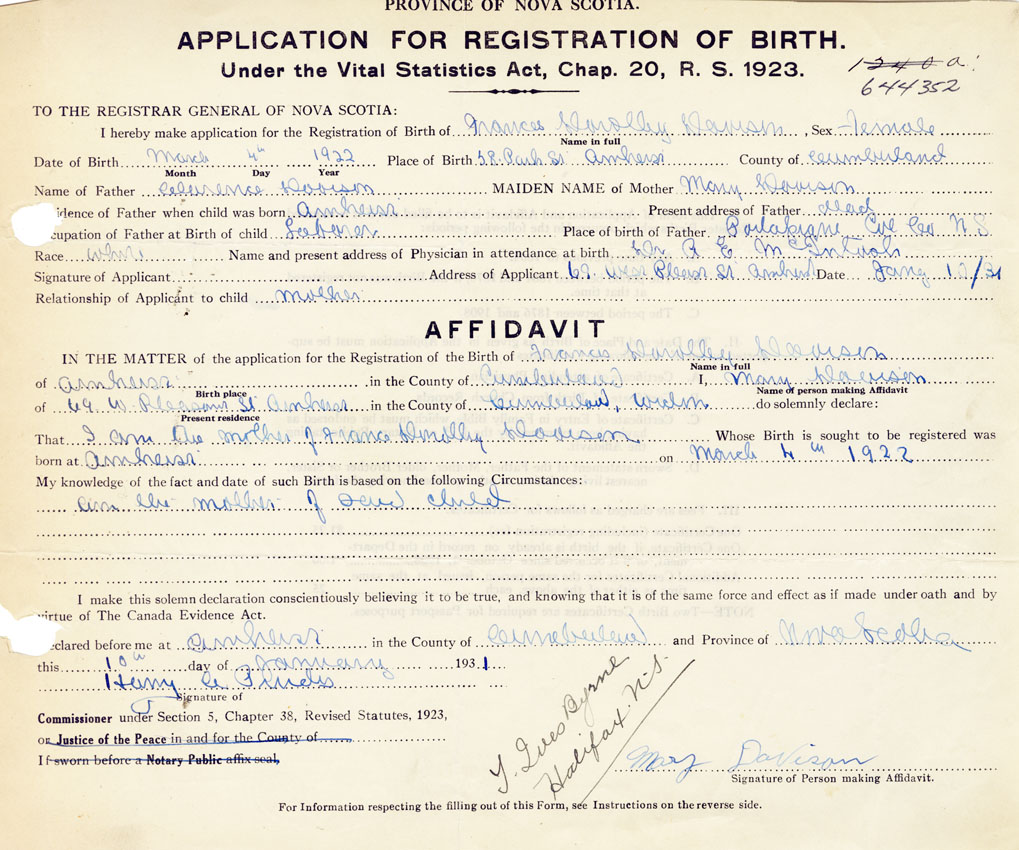 PROVINCE OF NOVA SCOTIA.
APPLICATION FOR REGISTRATION OF BIRTH.
Under the Vital Statistics Act, Chap. 20, R. S. 1923.
1240 a.
644352
TO THE REGISTRAR GENERAL OF NOVA SCOTIA:
I hereby make application for the Registration of Birth of Frances Davison, Sex female
Name in full
Date of Birth March 4th 1922 Place of Birth 58 Park St Amherst County of Cumberland
Month Day Year
Name of Father Clarence Davison MAIDEN NAME of Mother Mary Davison
idence of Father when child was born Amherst Present address of Father dead
cupation of Father at Birth of child Laborer Place of birth of Father. Col Co N S
Race White Name and present address of Physician in attendance at birth Dr. R E
Signature of Applicant Address of Applicant 69 West Pleast St Amherst Date Jany 10/31
Relationship of Applicant to child mother
AFFIDAVIT
IN THE MATTER of the application for the Registration of the Birth of Frances Davison
Name in full
of Amherst in the County of Cumberland I, Mary Davison
Birth place Name of person making Affidavit
of 69 W. Pleasant St Amherst in the County of Cumberland, do solemnly declare:
Present residence
That I am the mother of Davison Whose Birth is sought to be registered was
born at Amherst on March 4th 1922
My knowledge of the fact and date of such Birth is based on the following Circumstances:
am the mother of said child
I make this solemn declaration conscientiously believing it to be true, and knowing that it is of the same force and effect as if made under oath and by
virtue of The Canada Evidence Act.
eclared before me at Amherst in the County of Cumberland and Province of Nova Scotia
this 10th day of January 1931
Harry
Signature of
Commissioner under Section 5, Chapter 38, Revised Statutes, 1923,
or Justice of the Peace in and for the County of
If sworn before a Notary Public affix seal,
Byrne
Halifax. N.S.
Mary Davison
Signature of Person making Affidavit.
For Information respecting the filling out of this Form, see Instructions on the reverse side.